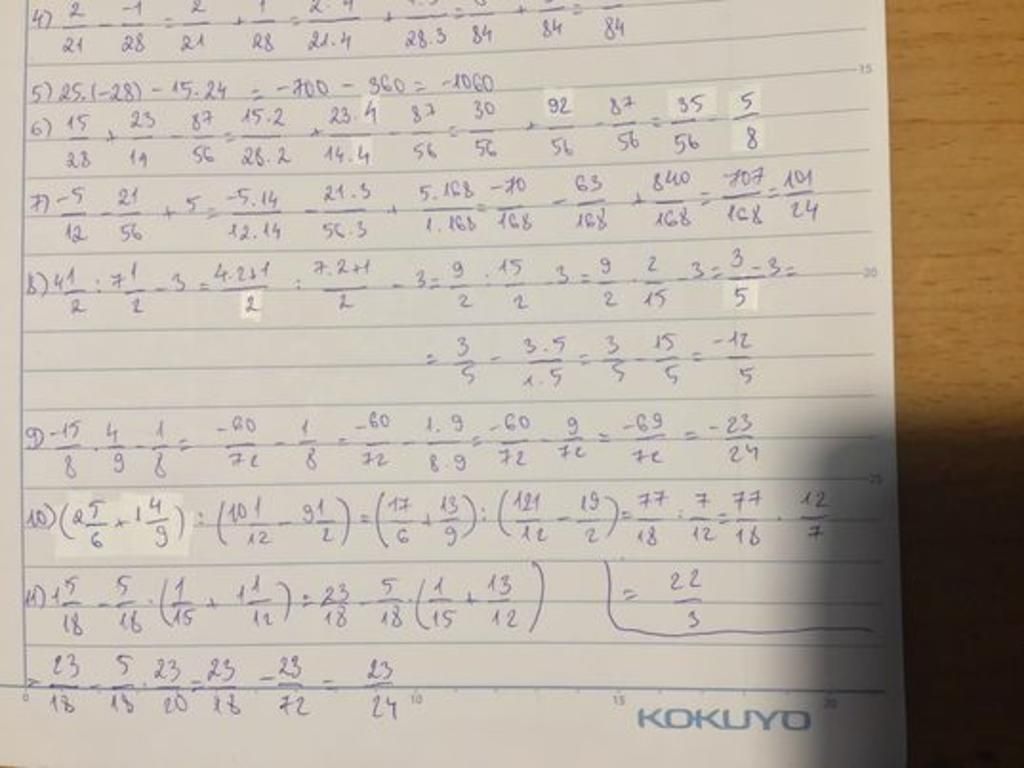 4) 2/21 - -1/28 = 2/21 + 1/28 = 2.4/21.4 + /28.3 = /84 + /84 = /84
15
5) 25.(-28) - 15.24 = -700 - 360 = -1060
6) 15/28 + 23/19 - 87/56 = 15.2/28.2 + 23.4/14.4 - 87/56 = 30/56 + 92/56 - 87/56 = 35/56 - 5/8
7) -5/12 - 21/56 + 5 = -5.14/12.14 - 21.3/56.3 + 5.168/1.168 = -70/168 - 63/168 + 840/168 = 707/168 = 101/24
8) 4 1/2 : 7 1/2 - 3 = 4.2+1/2 : 7.2+1/2 - 3 = 9/2 : 15/2 - 3 = 9/2 . 2/15 - 3 = 3/5 - 3 =
20
= 3/5 - 3.5/1.5 = 3/5 - 15/5 = -12/5
9) -15/8 . 4/9 - 1/8 = -60/72 - 1/8 = -60/72 - 1.9/8.9 = -60/72 - 9/72 = -69/72 = -23/24
25
10) (2 5/6 + 1 4/9) : (10 1/12 - 9 1/2) = (17/6 + 13/9) : (121/12 - 19/2) = 77/18 : 7/12 = 77/18 . 12/7
= 22/3
11) 1 5/18 - 5/18 . (1/15 + 1 1/12) = 23/18 - 5/18 . (1/15 + 13/12)
= 23/18 - 5/18 . 23/20 = 23/18 - 23/72 = 23/24
0 10 15 20
KOKUYO